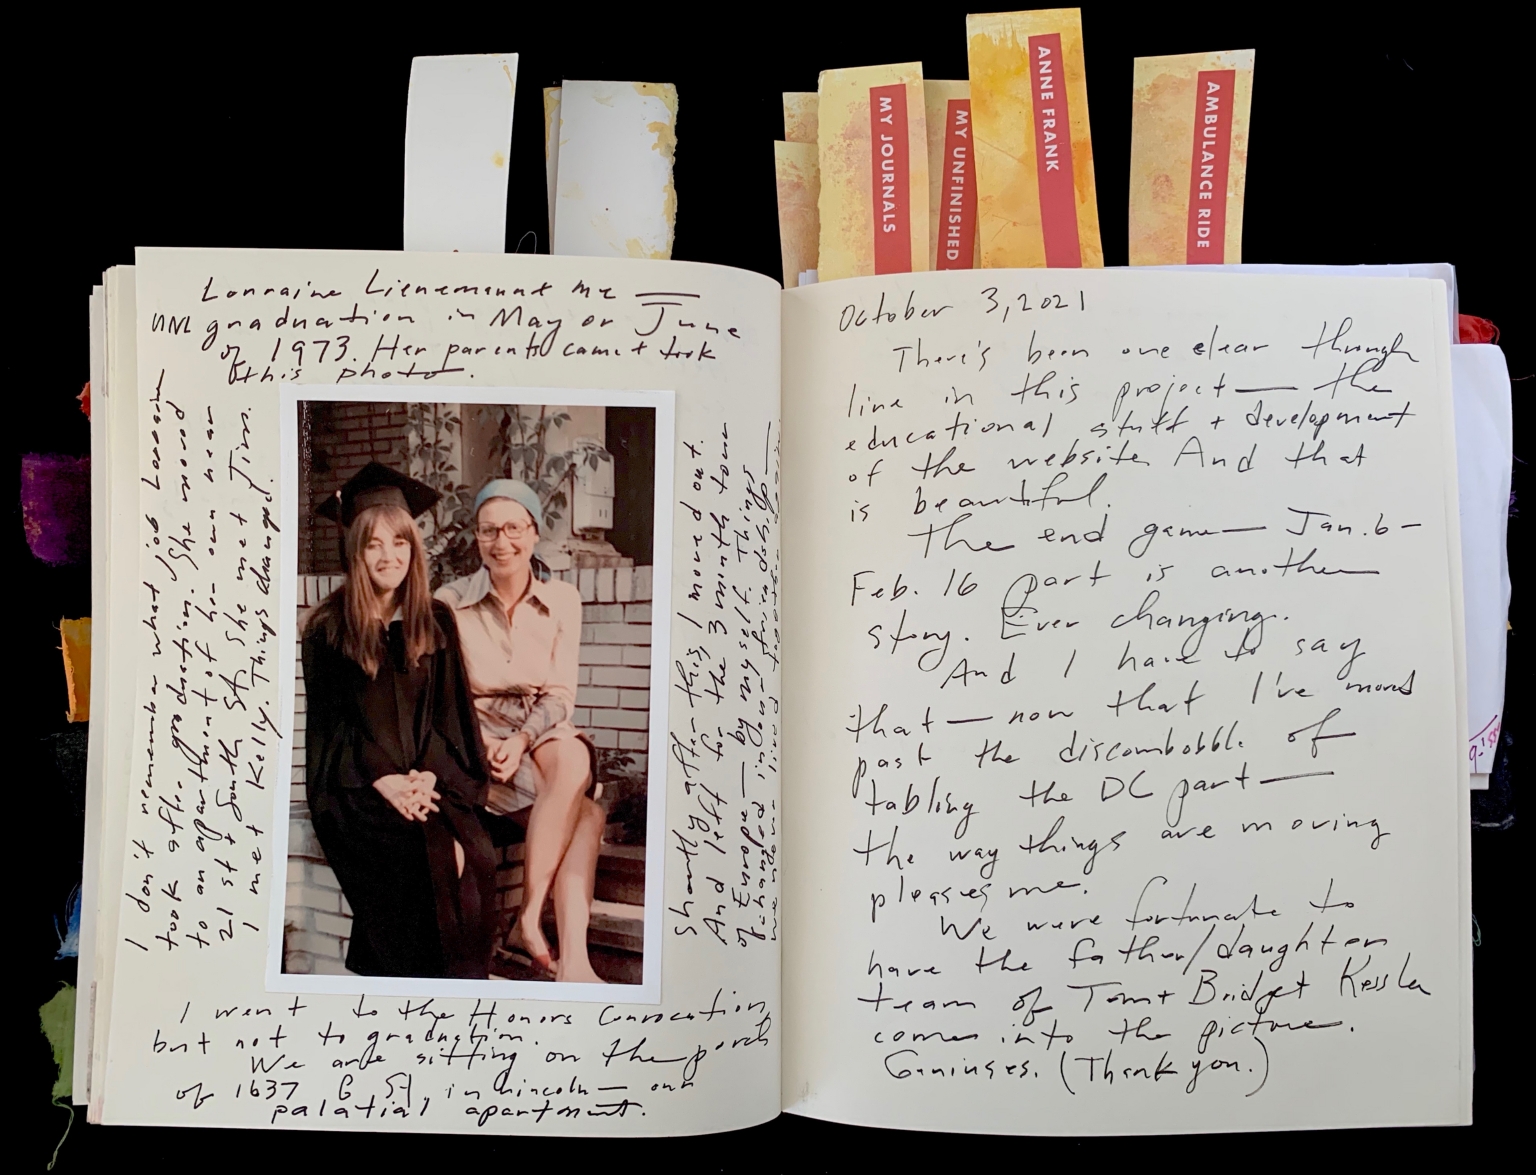 MY JOURNALS
MY UNFINISHED
ANNE FRANK
AMBULANCE RIDE
Lorraine Lienemann + me —
UNL graduation in May or June
of 1973. Her parents came + took
this photo.
I don't remember what job Lorraine
took after graduation. She moved
to an apartment of her own near
21st + South St. She met Tim.
I met Kelly. Things changed.
Shortly after this, I moved out.
And left for the 3 month tour
of Europe — by myself. This
I went to the Honors Convocation,
but not to graduation.
We are sitting on the porch
of 1637 G St. in Lincoln — our
palatial apartment.
October 3, 2021
There's been one clear through
line in this project — the
educational stuff + development
of the website. And that
is beautiful.
The end game — Jan. 6 –
Feb. 16 part is another
story. Ever changing.
And I have to say
that — now that I've moved
past the discombobble of
tabling the DC part —
the way things are moving
pleases me.
We were fortunate to
have the father/daughter
team of Tom + Bridget Kessler
come into the picture.
Geniuses. (Thank you.)